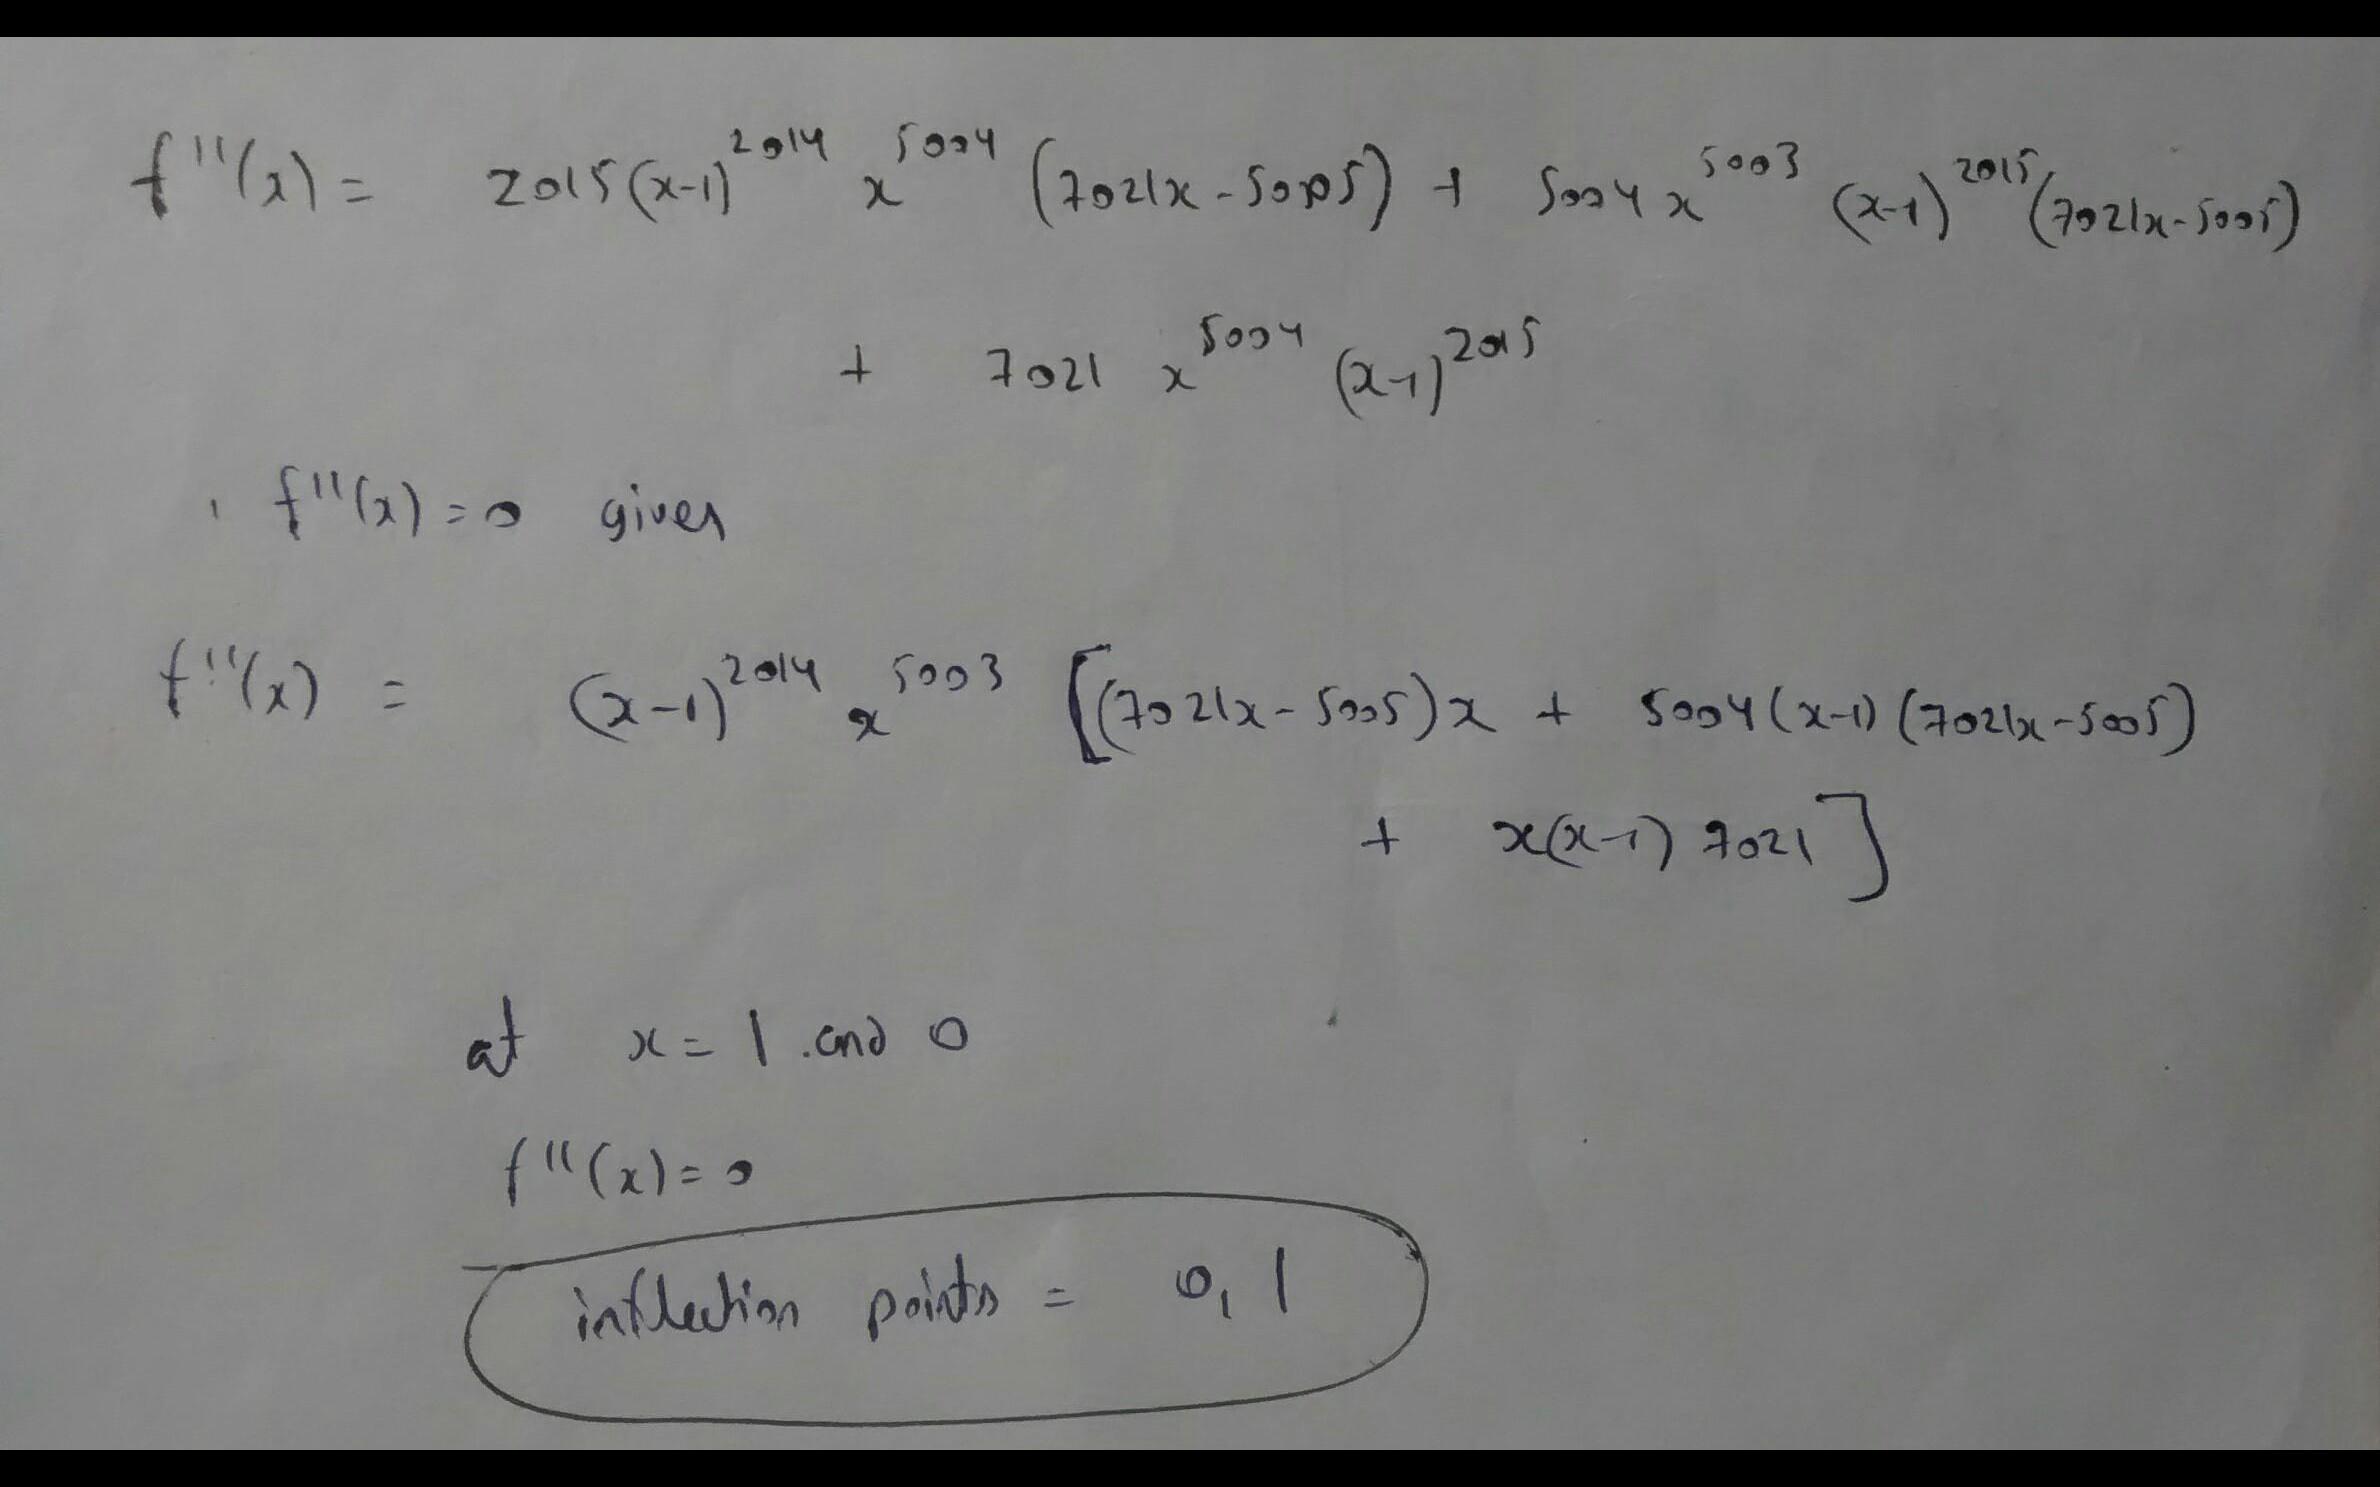 f''(x) = 2015(x-1)^2014 x^5004 (7021x-5005) + 5004x^5003 (x-1)^2015 (7021x-5005)
+ 7021 x^5004 (x-1)^2015
f''(x) = 0 gives
f''(x) = (x-1)^2014 x^5003 [(7021x-5005)x + 5004(x-1)(7021x-5005)
+ x(x-1) 7021]
at x = 1 and 0
f''(x) = 0
inflection points = 0, 1